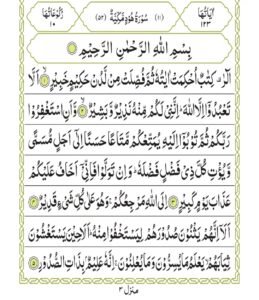 اٰيَاتُهَا ١٢٣ (١١) سُوْرَةُ هُوْدٍ مَّكِّيَّةٌ (٥٢) رُكُوْعَاتُهَا ١٠
بِسْمِ اللّٰهِ الرَّحْمٰنِ الرَّحِيْمِ
الٓرٰ كِتٰبٌ اُحْكِمَتْ اٰيٰتُهٗ ثُمَّ فُصِّلَتْ مِنْ لَّدُنْ حَكِيْمٍ خَبِيْرٍ ۙ﴿١﴾ اَلَّا
تَعْبُدُوْۤا اِلَّا اللّٰهَ ؕ اِنَّنِيْ لَكُمْ مِّنْهُ نَذِيْرٌ وَّبَشِيْرٌ ۙ﴿٢﴾ وَّاَنِ اسْتَغْفِرُوْا
رَبَّكُمْ ثُمَّ تُوْبُوْۤا اِلَيْهِ يُمَتِّعْكُمْ مَّتَاعًا حَسَنًا اِلٰۤى اَجَلٍ مُّسَمًّى
وَّيُؤْتِ كُلَّ ذِيْ فَضْلٍ فَضْلَهٗ ؕ وَاِنْ تَوَلَّوْا فَاِنِّيْۤ اَخَافُ عَلَيْكُمْ
عَذَابَ يَوْمٍ كَبِيْرٍ ﴿٣﴾ اِلَى اللّٰهِ مَرْجِعُكُمْ ۚ وَهُوَ عَلٰى كُلِّ شَيْءٍ قَدِيْرٌ ﴿٤﴾
اَلَاۤ اِنَّهُمْ يَثْنُوْنَ صُدُوْرَهُمْ لِيَسْتَخْفُوْا مِنْهُ ؕ اَلَا حِيْنَ يَسْتَغْشُوْنَ
ثِيَابَهُمْ ۙ يَعْلَمُ مَا يُسِرُّوْنَ وَمَا يُعْلِنُوْنَ ۚ اِنَّهٗ عَلِيْمٌۢ بِذَاتِ الصُّدُوْرِ ﴿٥﴾
منزل ٣